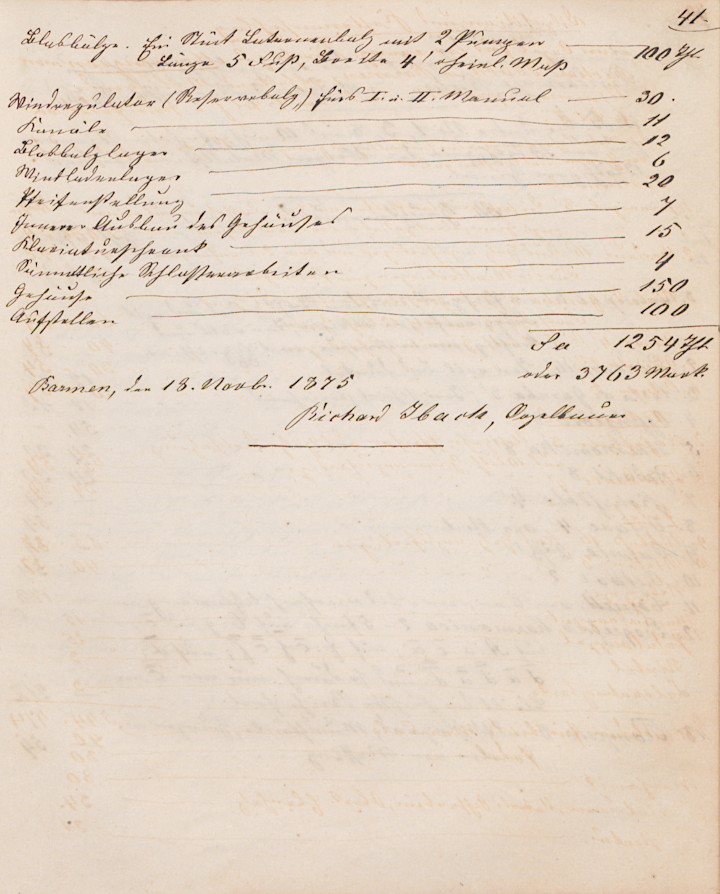 41.
Blasbälge. Ein Stück Laternenbalg mit 2 Pumpen 100 Th.
Länge 5 Fuß, Breite 4' rheinl. Maß
Windregulator (Reservebalg) fürs I. u. II. Manual 30.
Kanäle 11
Blasbalglager 12
Windladenlager 6
Pfeifenstellung 20
Innerer Ausbau des Gehäuses 7
Klaviaturschrank 15
Sämmtliche Schlosserarbeiten 4
Gehäuse 150
Aufstellen 100
Sa 1254 Th.
oder 3763 Mark.
Barmen, den 18. Novbr. 1875
Richard Ibach, Orgelbauer.